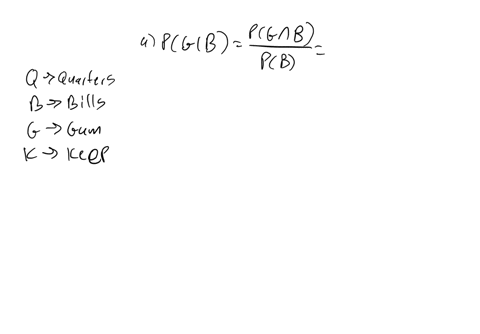 a) P(G|B) = P(G∩B)/P(B) =
Q → Quarters
B → Bills
G → Gum
K → Keep